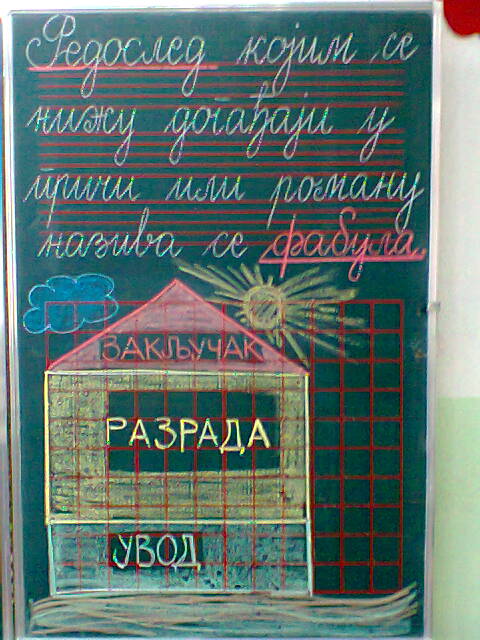 Редослед којим се
нижу догађаји у
причи или роману
назива се фабула.
ЗАКЉУЧАК
РАЗРАДА
УВОД